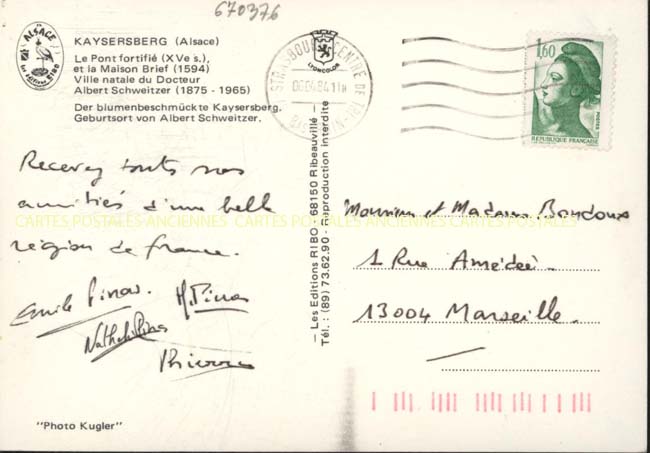 670376
ALSACE
KAYSERSBERG (Alsace)
Le Pont fortifié (XVe s.),
et la Maison Brief (1594)
Ville natale du Docteur
Albert Schweitzer (1875 - 1965)
Der blumenbeschmückte Kaysersberg.
Geburtsort von Albert Schweitzer.
LYONCOLOR
STRASBOURG CENTRE DE TRI
BAS RHIN
1,60
POSTES
REPUBLIQUE FRANÇAISE
Recevez touts nos
amitiés d'une belle
région de france.
Emile Pinas. M. Pinas
Nathalie Pinas
Thierry
"Photo Kugler"
— Les Editions RIBO — 68150 Ribeauvillé —
Tél. : (89) 73.62.90 - Reproduction interdite
Monsieur et Madame
1 Rue Amédée.
13004 Marseille.
CARTES POSTALES ANCIENNES CARTES POSTALES ANCIENNES CARTES POSTALES